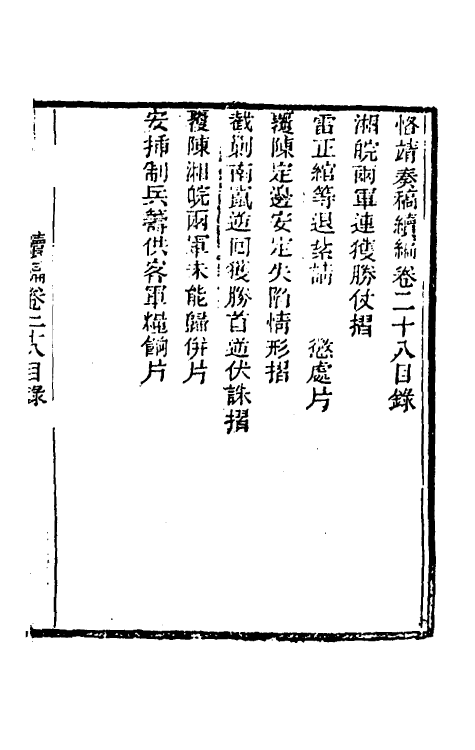 恪靖奏稿續編卷二十八目錄
湘皖兩軍連獲勝仗摺
雷正綰等退紮請　懲處片
覆陳定邊安定失陷情形摺
截剿南竄逆回獲勝首逆伏誅摺
覆陳湘皖兩軍未能歸併片
安插制兵籌供客軍糧餉片
續編卷二十八目錄